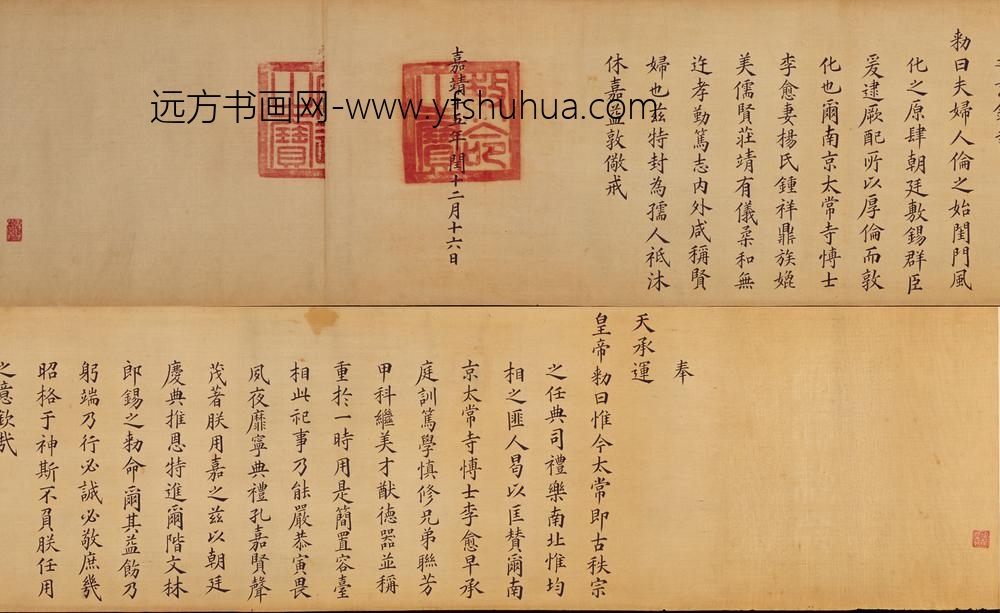 勑曰夫婦人倫之始閨門風
化之原肆朝廷敷錫群臣
爰逮厥配所以厚倫而敦
化也爾南京太常寺博士
李愈妻楊氏鍾祥鼎族媲
美儒賢莊靖有儀柔和無
迕孝勤篤志內外咸稱賢
婦也茲特封為孺人祗沐
休嘉益敦儆戒
嘉靖十五年閏十二月十六日
敕命之寶
远方书画网-www.yfshuhua.com
奉
天承運
皇帝勑曰惟今太常即古秩宗
之任典司禮樂南北惟均
相之匪人曷以匡贊爾南
京太常寺博士李愈早承
庭訓篤學慎修兄弟聯芳
甲科繼美才猷德器並稱
重於一時用是簡置容臺
相此祀事乃能嚴恭寅畏
夙夜靡寧典禮孔嘉賢聲
茂著朕用嘉之茲以朝廷
慶典推恩特進爾階文林
郎錫之勑命爾其益飭乃
躬端乃行必誠必敬庶幾
昭格于神斯不負朕任用
之意欽哉